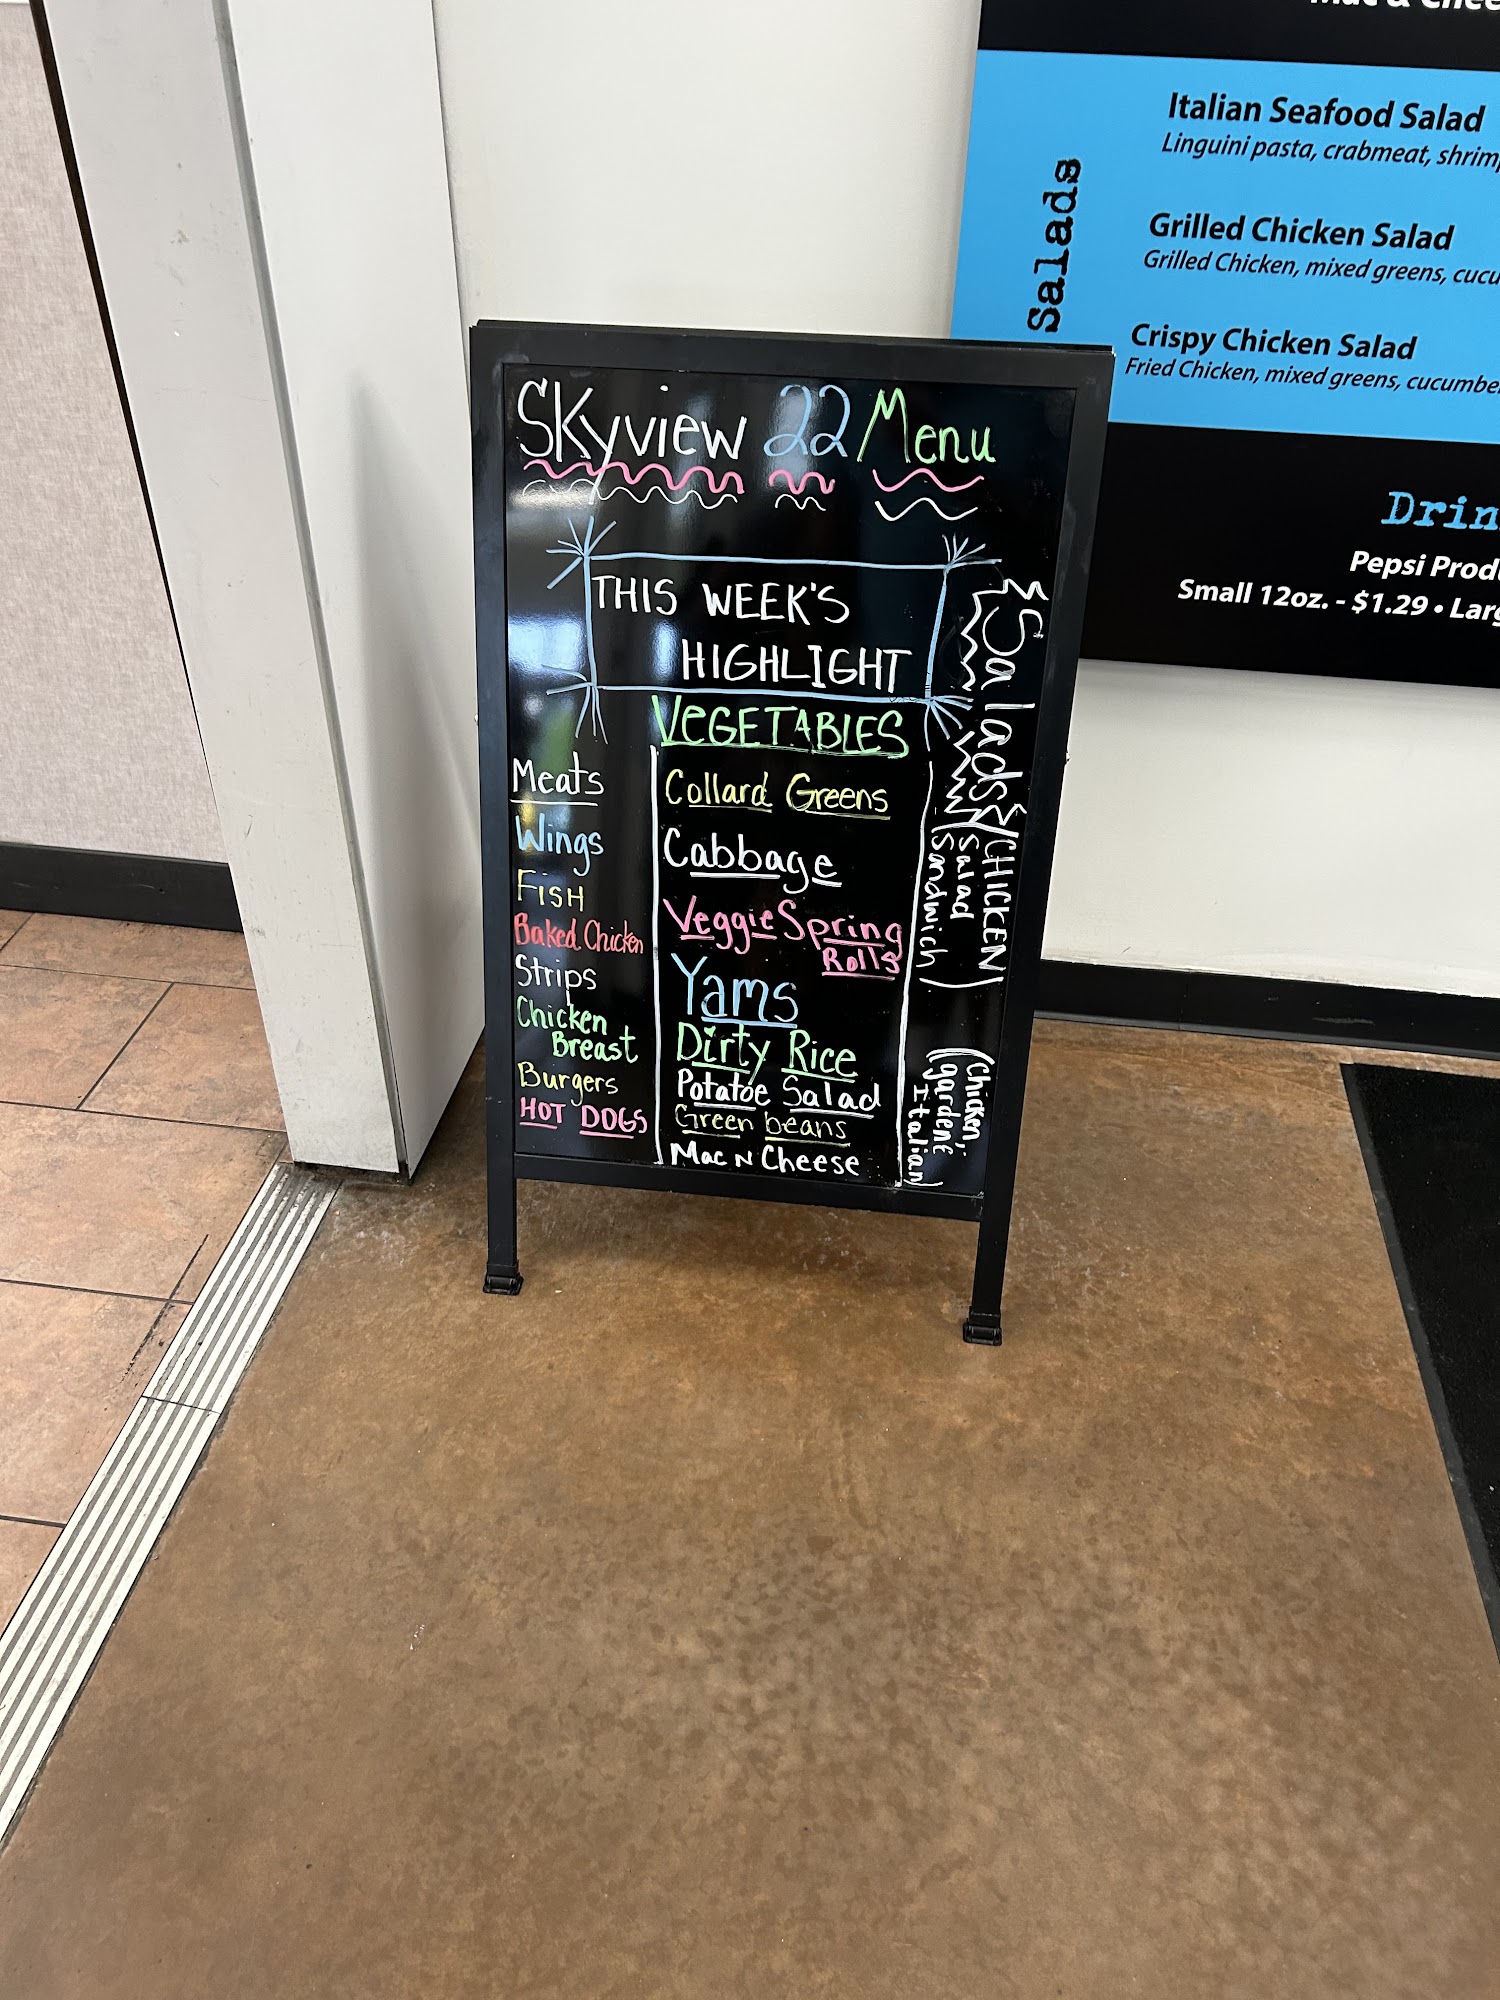 SKyview 22 Menu
THIS WEEK'S
HIGHLIGHT
VEGETABLES
Meats
Wings
FISH
Baked Chicken
Strips
Chicken
Breast
Burgers
HOT DOGS
Collard Greens
Cabbage
Veggie Spring
Rolls
Yams
Dirty Rice
Potatoe Salad
Green beans
Mac N Cheese
Salads
(CHICKEN)
(Salad
Sandwich)
(Chicken,
garden &
Italian)
Mac & Chee
Salads
Italian Seafood Salad
Linguini pasta, crabmeat, shrimp
Grilled Chicken Salad
Grilled Chicken, mixed greens, cucu
Crispy Chicken Salad
Fried Chicken, mixed greens, cucumbe
Drin
Pepsi Produ
Small 12oz. - $1.29 • Larg